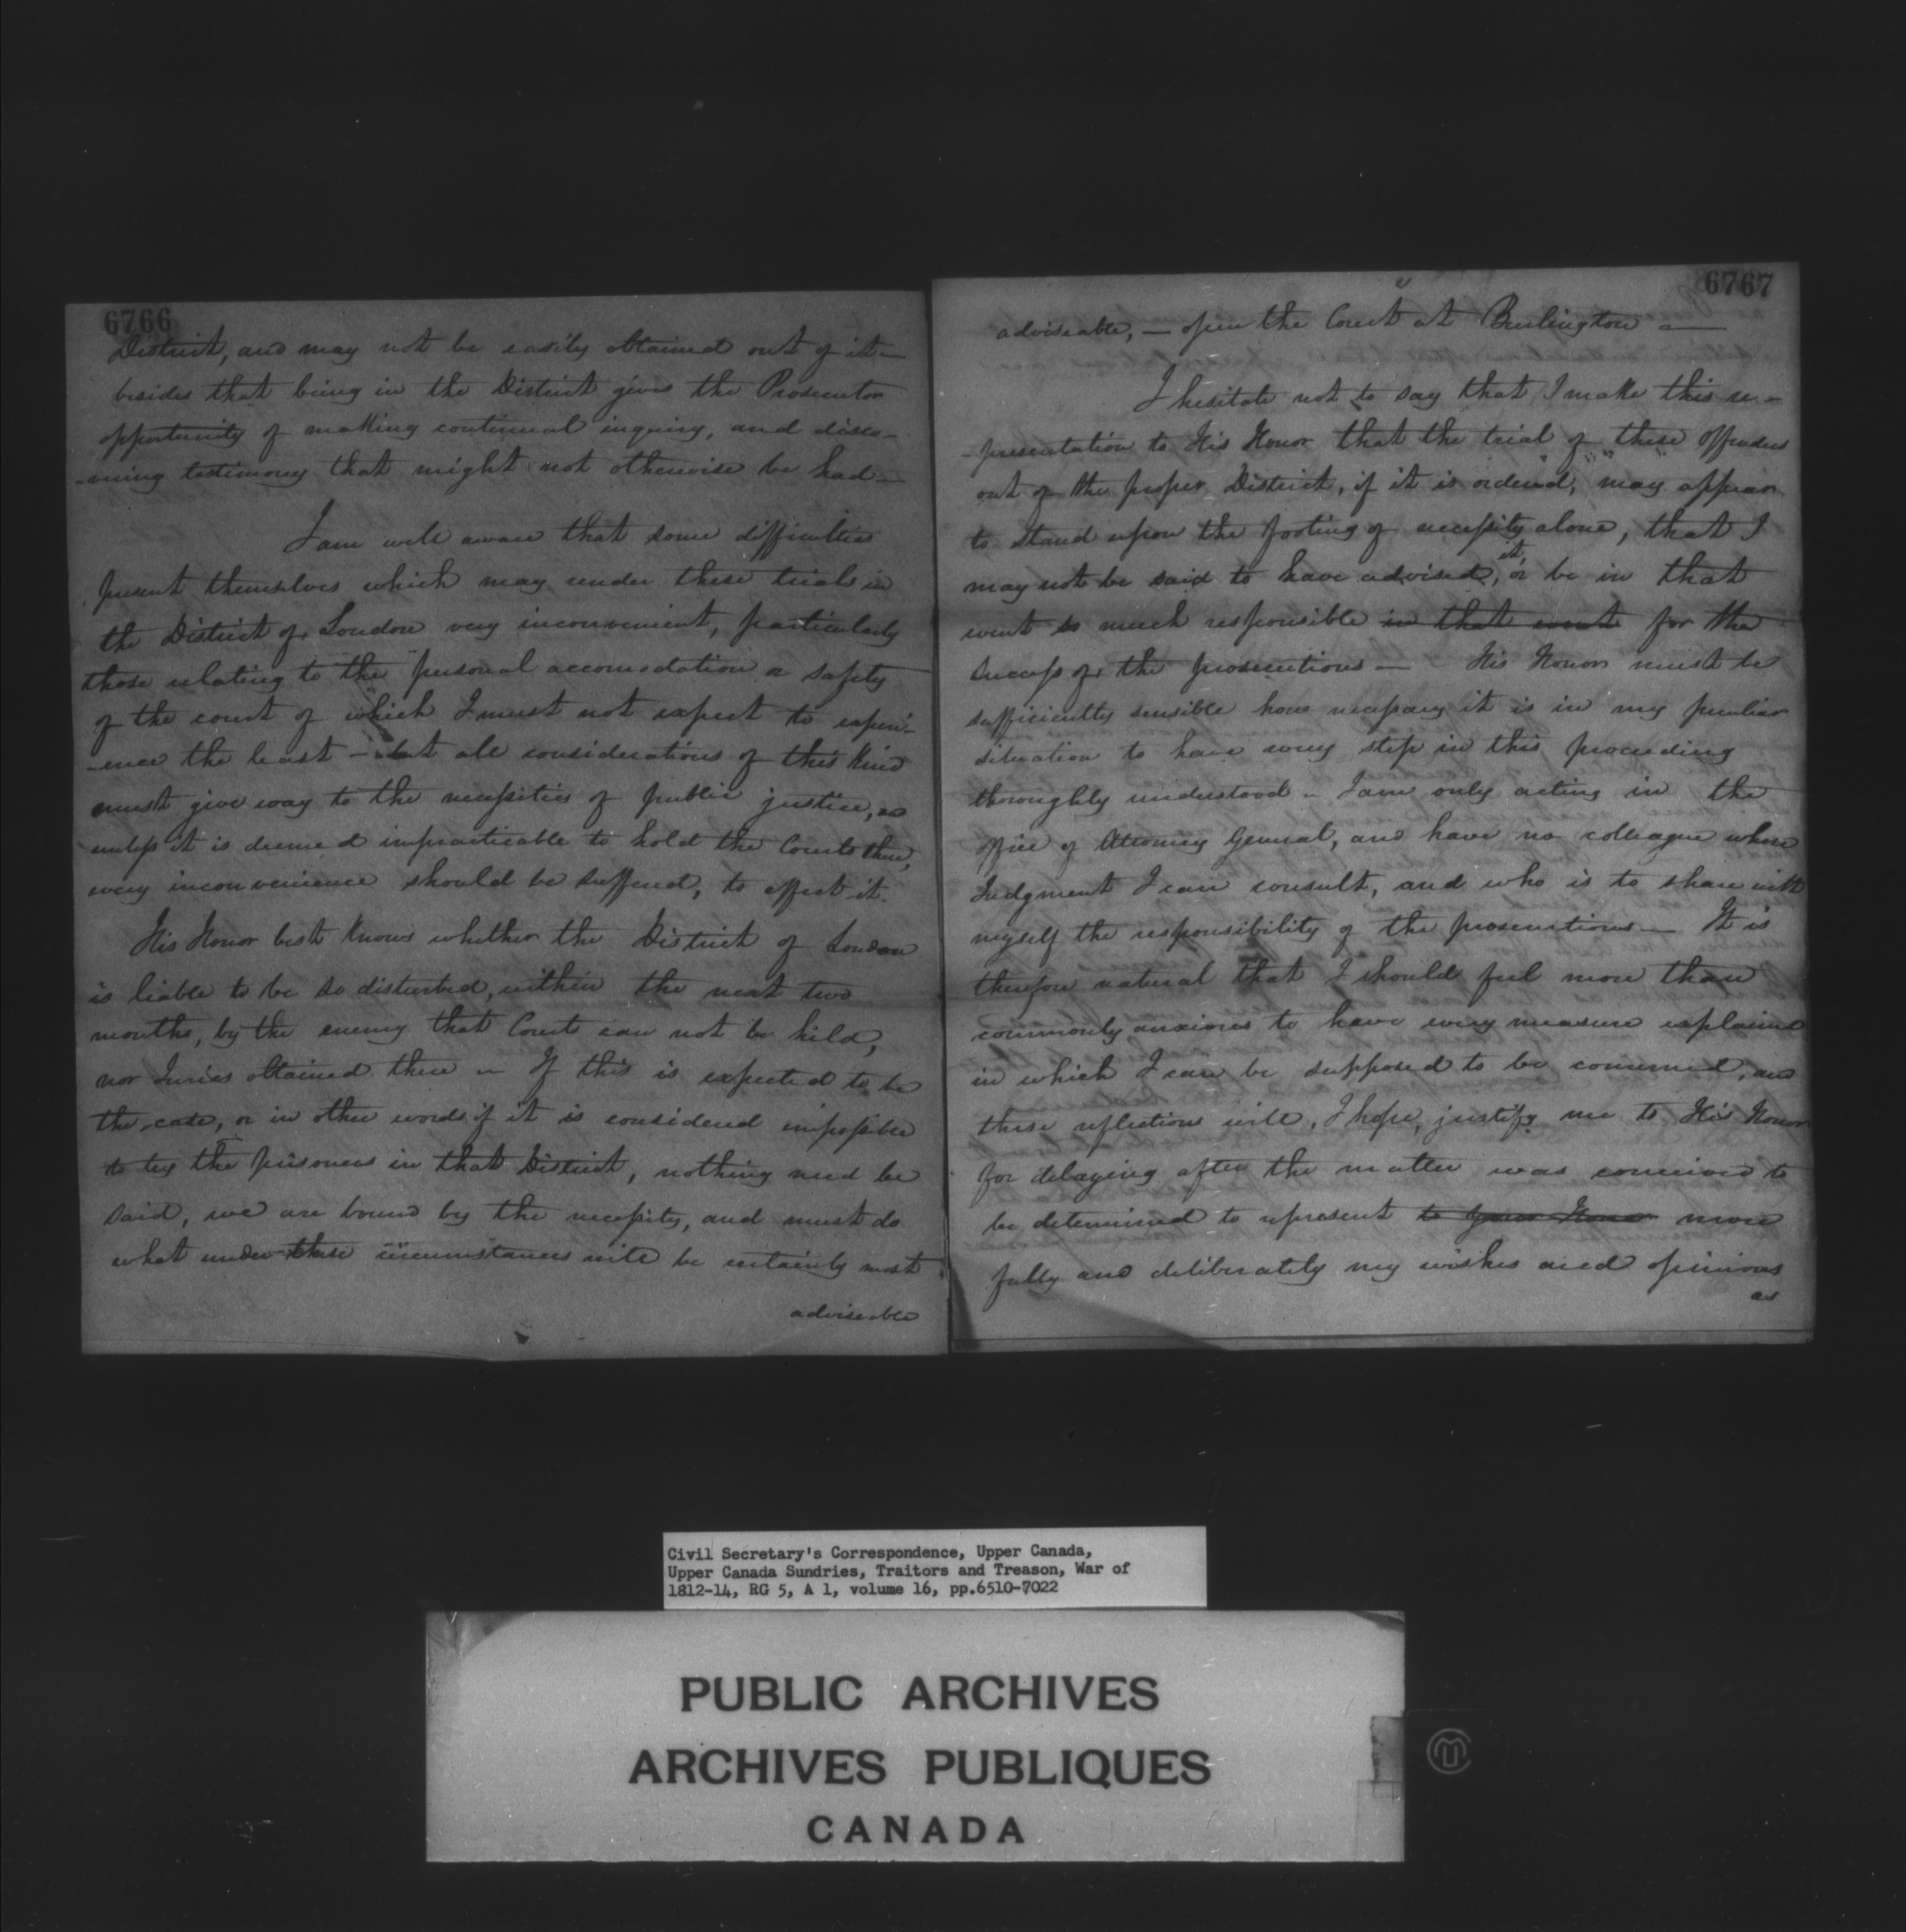 6766
District, and may not be easily obtained out of it—
besides that being in the District gives the Prosecutor
opportunity of making continual inquiry, and disco-
-vering testimony that might not otherwise be had—
I am well aware that some difficulties
present themselves which may render these trials in
the District of London very inconvenient, particularly
those relating to the personal accomodation or safety
of the court of which I must not expect to experi-
-ence the least — but all considerations of this kind
must give way to the necessities of public justice, as
unless it is deemed impracticable to hold the Courts there,
every inconvenience should be suffered, to effect it.
His Honor best knows whether the District of London
is liable to be so disturbed, within the next two
months, by the enemy that Courts can not be held,
nor Juries obtained there — If this is expected to be
the case, or in other words if it is considered impossible
to try the prisoners in that District, nothing need be
said, we are bound by the necessity, and must do
what under these circumstances will be certainly most
adviseable
6767
adviseable, — open the Court at Burlington —
I hesitate not to say that I make this re-
-presentation to His Honor that the trial of these Offenders
out of the proper District, if it is ordered, may appear
to stand upon the footing of necessity alone, that I
may not be said to have advised it, or be in that
event so much responsible in that event for the
success of the prosecutions — His Honor must be
sufficiently sensible how necessary it is in my peculiar
situation to have every step in this proceeding
thoroughly understood — I am only acting in the
office of Attorney General, and have no colleague whose
Judgment I can consult, and who is to share with
myself the responsibility of the prosecutions — It is
therefore natural that I should feel more than
commonly anxious to have every measure explained
in which I can be supposed to be concerned, and
these reflections will, I hope, justify me to His Honor
for delaying after the matter was conceived to
be determined to represent to your Honor more
fully and deliberately my wishes and opinions
as
Civil Secretary's Correspondence, Upper Canada,
Upper Canada Sundries, Traitors and Treason, War of
1812-14, RG 5, A 1, volume 16, pp.6510-7022
PUBLIC ARCHIVES
ARCHIVES PUBLIQUES
CANADA